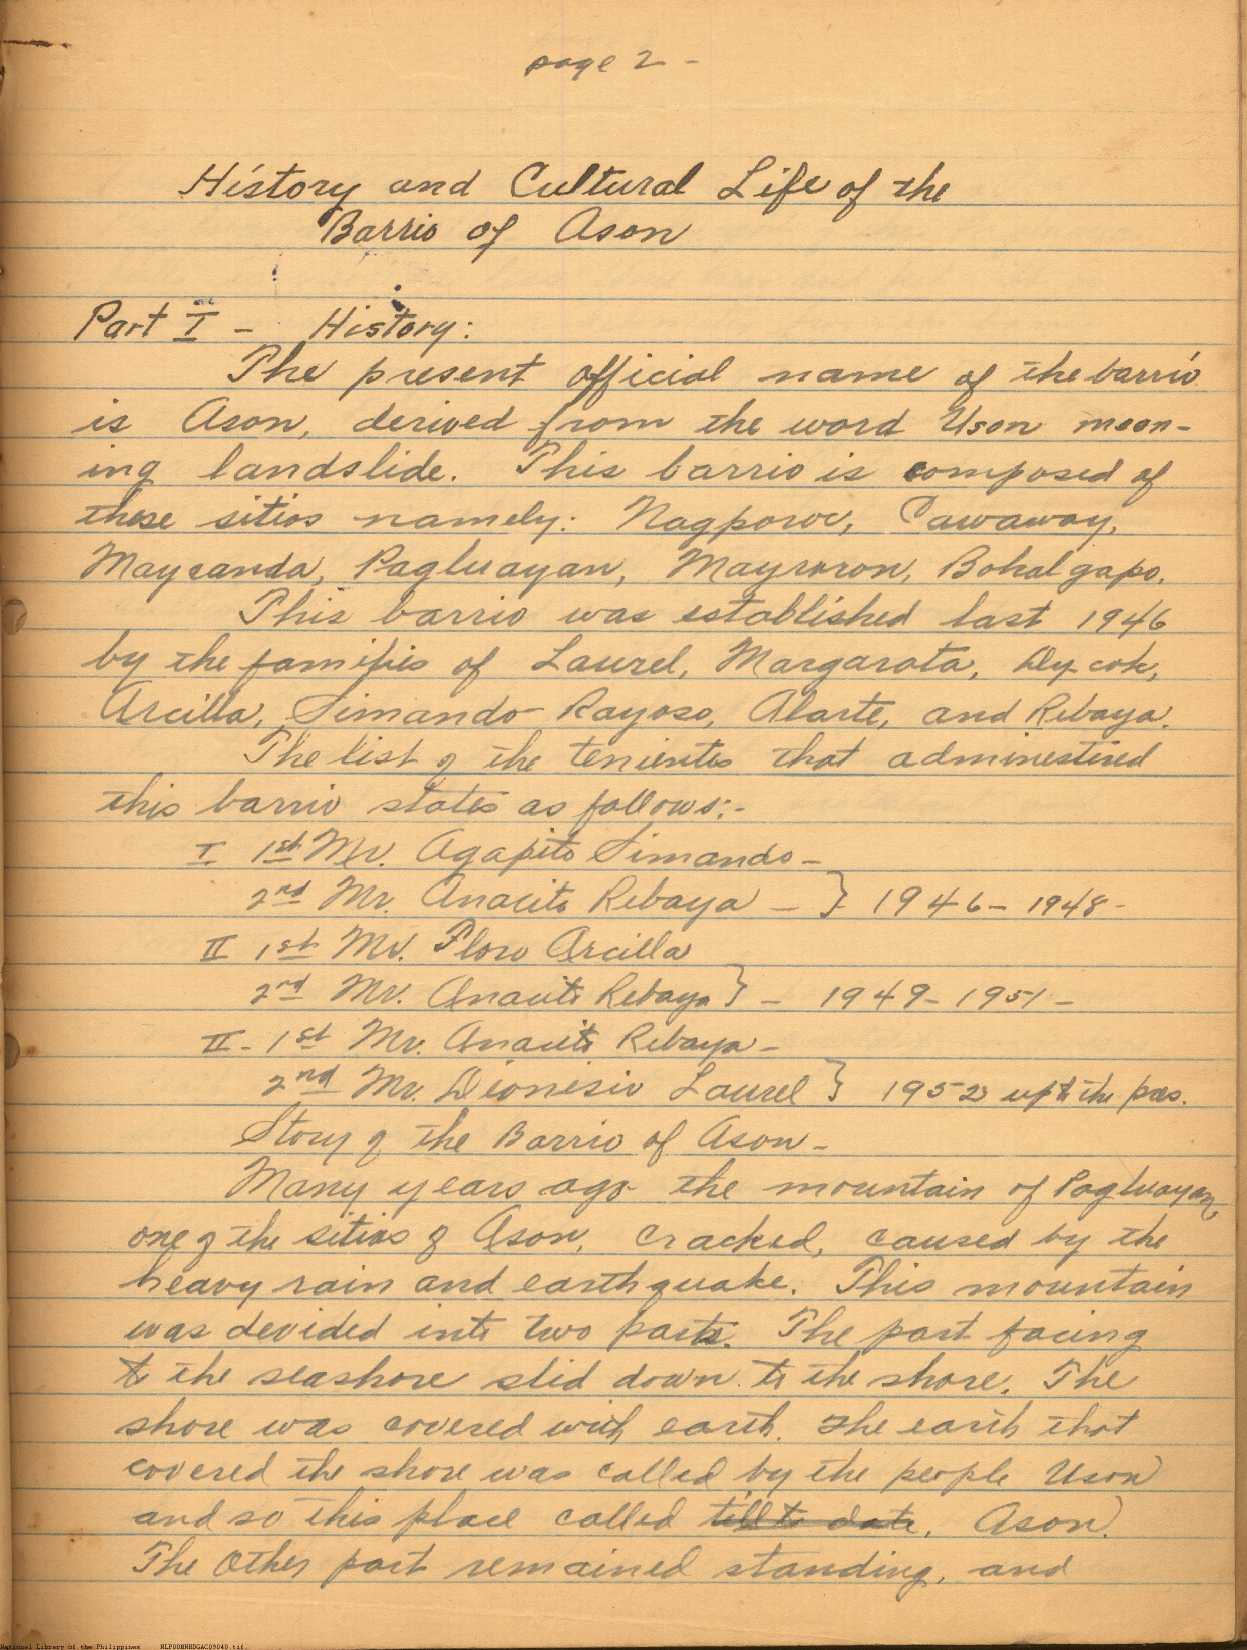 page 2 -
History and Cultural Life of the
Barrio of Ason
Part I - History:
The present official name of the barrio
is Ason, derived from the word Uson mean-
ing landslide. This barrio is composed of
these sitios namely: Nagporoc, Cawaway,
Maycanda, Pagluayan, Mayroron, Bohalgapo.
This barrio was established last 1946
by the families of Laurel, Margarata, Dy cok,
Arcilla, Simando Rayoso, Alarte, and Rebaya.
The list of the tenientes that adminestired
this barrio states as follows:-
I 1st Mr. Agapito Simando -
2nd Mr. Anacito Rebaya - } 1946 - 1948 -
II 1st Mr. Floro Arcilla
2nd Mr. Anacito Rebaya } - 1949 - 1951 -
II - 1st Mr. Anacito Rebaya -
2nd Mr. Dionesio Laurel } 1952 up to the pres.
Story of the Barrio of Ason -
Many years ago the mountain of Pagluayan,
one of the sitios of Ason, cracked, caused by the
heavy rain and earthquake. This mountain
was devided into two parts. The part facing
to the seashore slid down to the shore. The
shore was covered with earth. The earth that
covered the shore was called by the people Uson
and so this place called till to date, Ason.
The other part remained standing, and
National Library of the Philippines NLPDDMNHDGAC09040.tif.